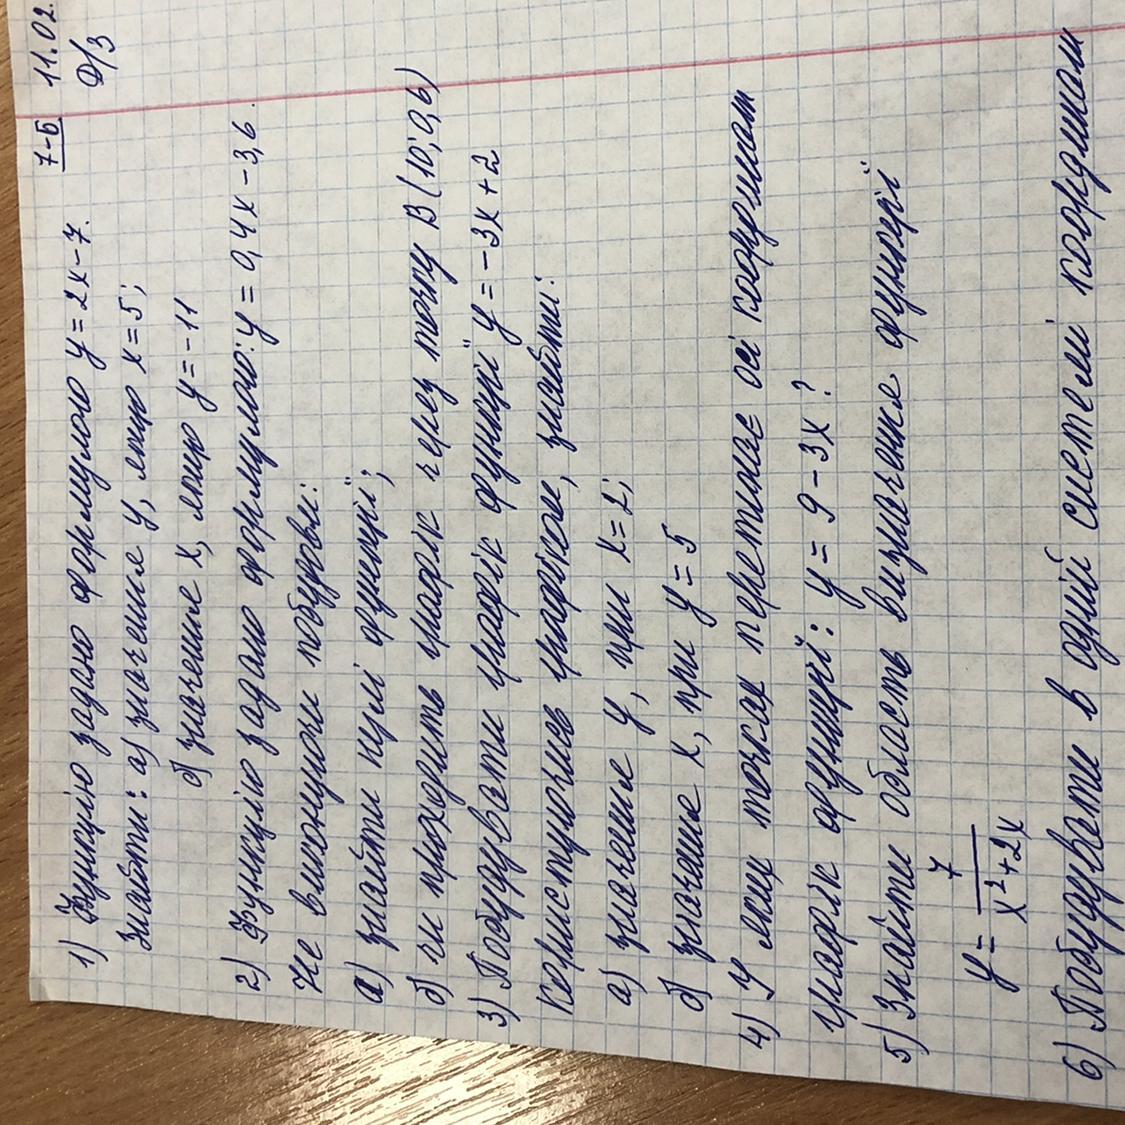 7-Б 11.02.
Д/З
1) Функцію задано формулою y = 2x - 7.
Знайти: а) значення y, якщо x = 5;
б) значення x, якщо y = -11
2) Функцію задано формулою: y = 0,4x - 3,6.
Не виконуючи побудови:
а) знайти нулі функції;
б) чи проходить графік через точку B (10; 0,6)
3) Побудувати графік функції y = -3x + 2
Користуючись графіком, знайти:
а) значення y, при x = 2;
б) значення x, при y = 5
4) У яких точках перетинає осі координат
графік функції: y = 9 - 3x?
5) Знайти область визначення функції
y = 7/(x² + 2x)
6) Побудувати в одній системі координат